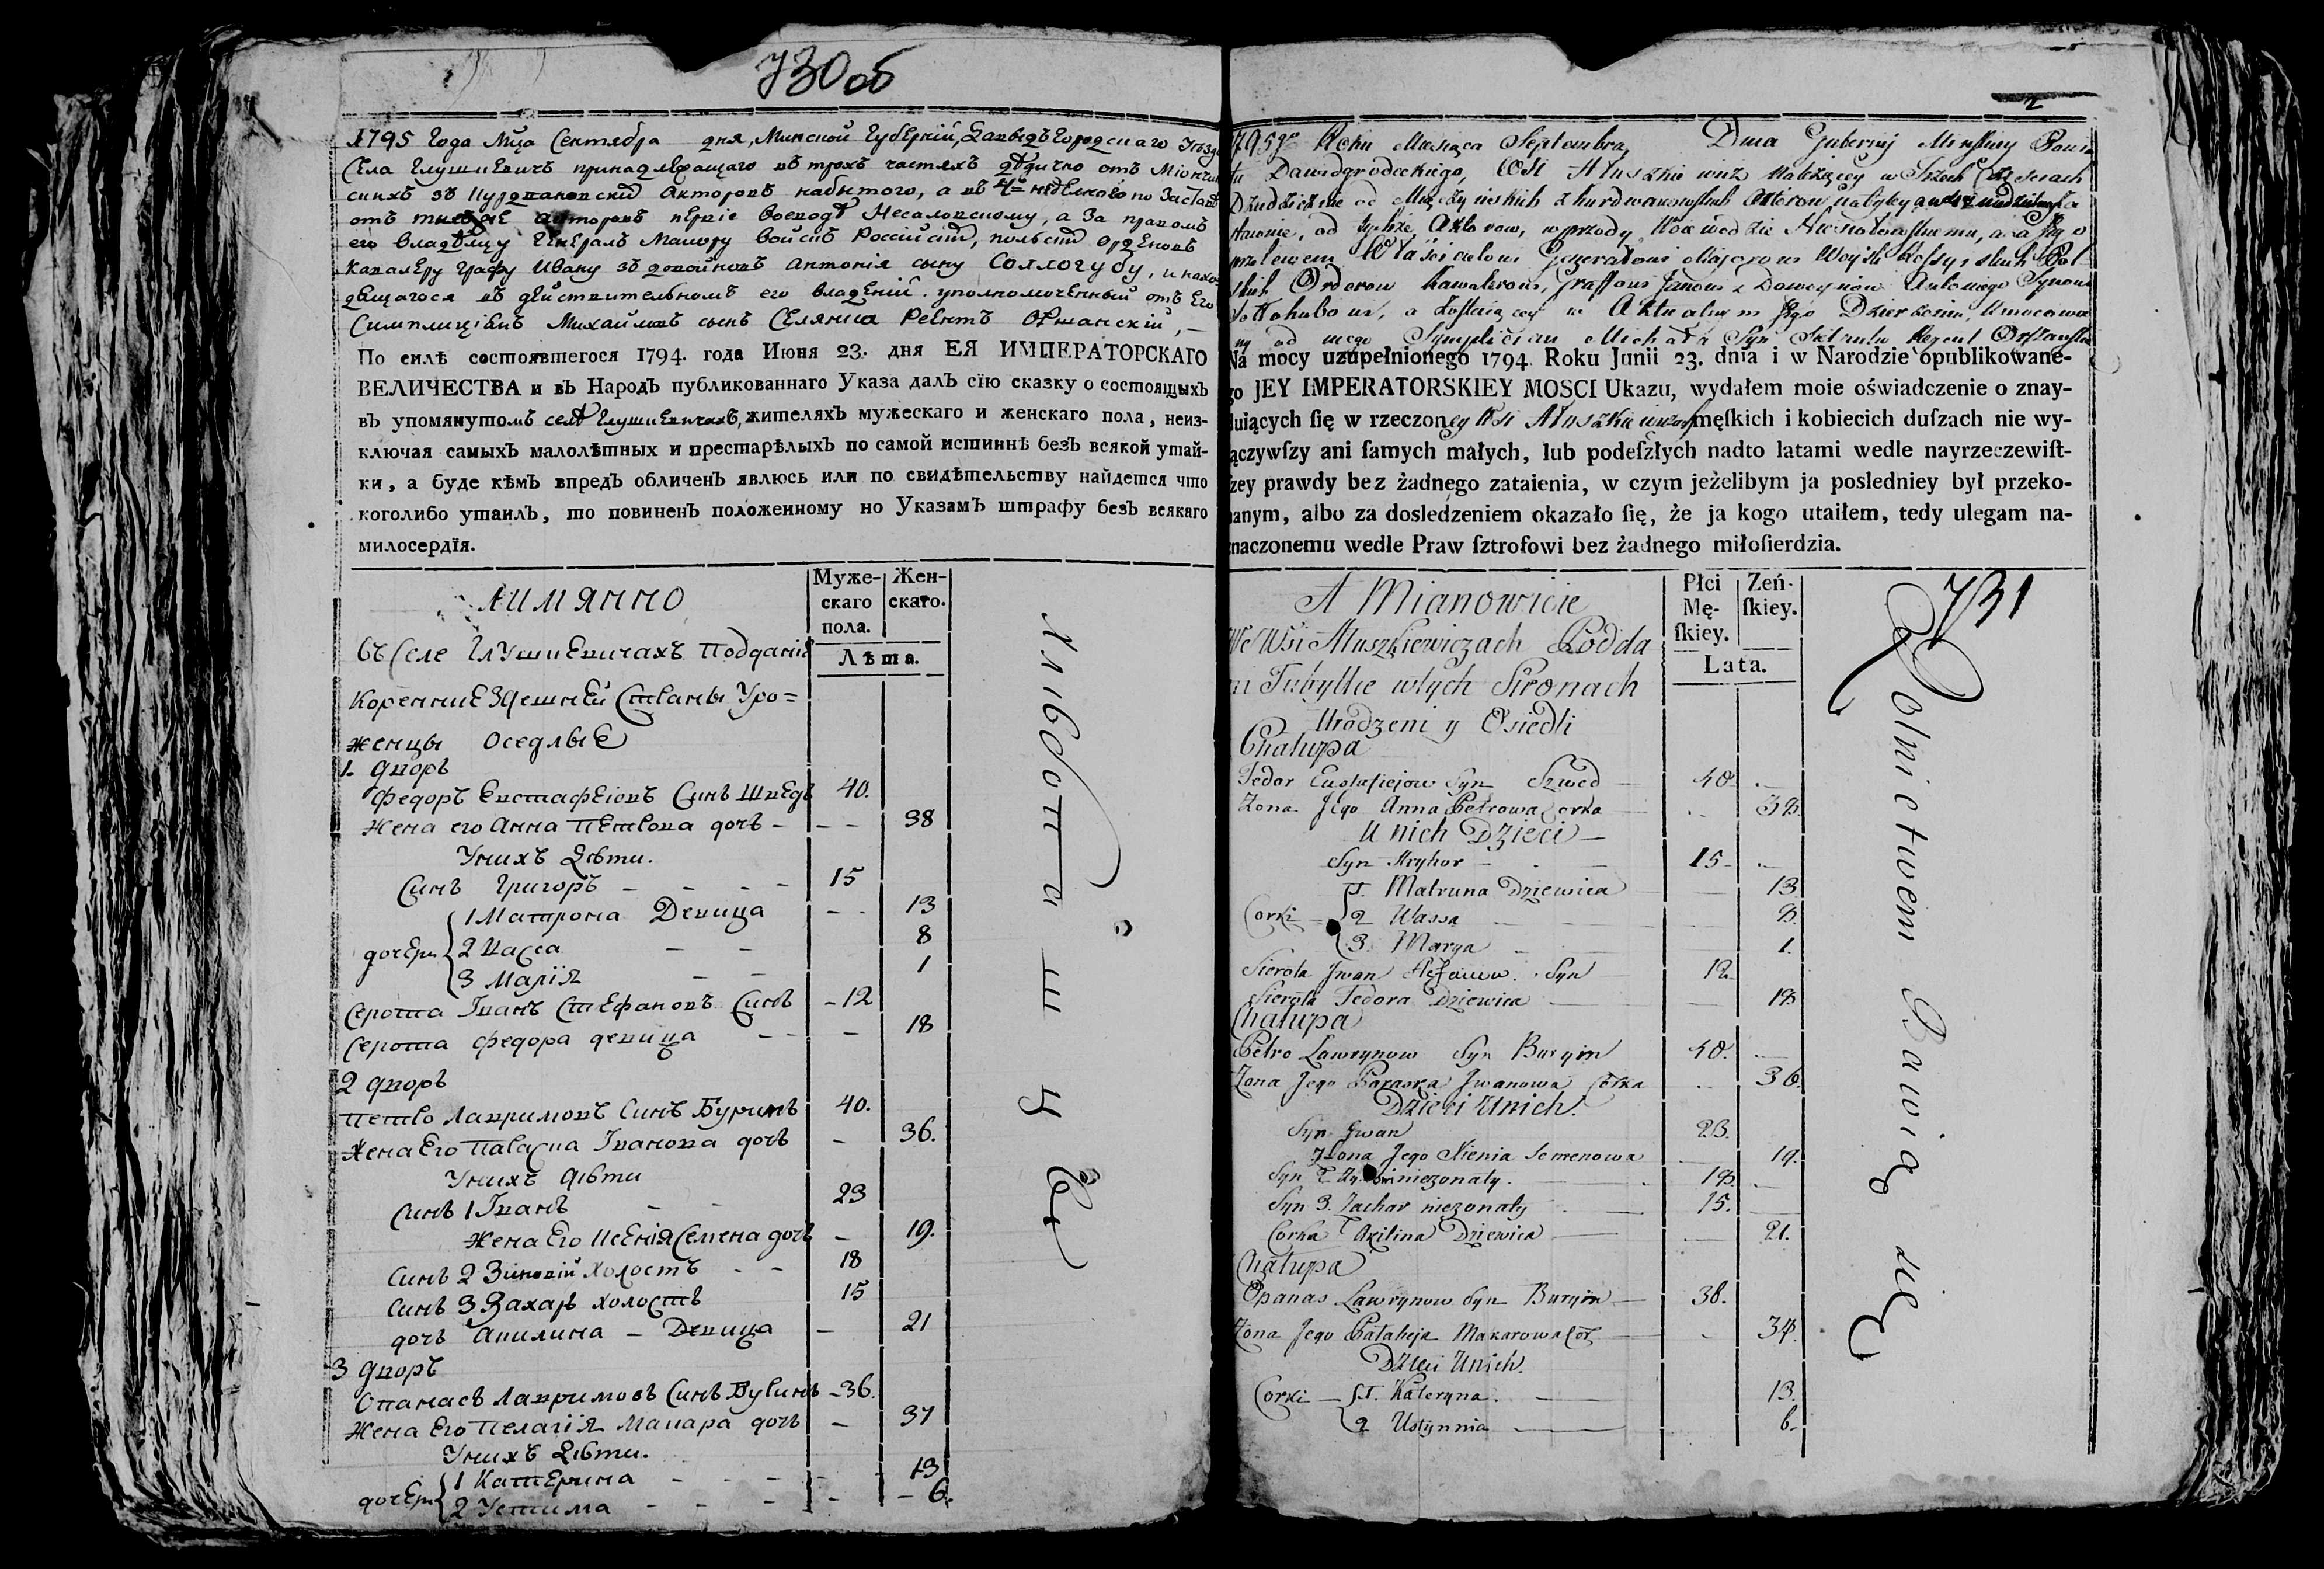 730об
1795 года Мца Сентября дня, Минской Губерніи, Давыдъ Городскаго
Села Глушкевичъ принадлежащаго въ трохъ частяхъ дѣдично отъ
актировъ набытого, а въ
отъ акторовъ первіе воеводѣ Несаловскому, а за правомъ
его владѣлцу Генералъ Маиору войскъ Россійскихъ, польскихъ орденовъ
Кавалеру Графу Ивану зъ довойновъ Антонія сыну Соллогубу,
дящагося въ дѣйствительномъ его владеніи уполномоченный отъ Его
Симплиціянъ Михайловъ сынъ Реентъ Оршанскій,
По силѣ состоявшегося 1794. года Июня 23. дня ЕЯ ИМПЕРАТОРСКАГО
ВЕЛИЧЕСТВА и въ Народъ публикованнаго Указа далъ сїю сказку о состоящыхъ
въ упомянутомъ селѣ Глушкевичахъ, жителяхъ мужескаго и женскаго пола, неиз-
ключая самыхъ малолѣтныхъ и престарѣлыхъ по самой истиннѣ безъ всякой утай-
ки, а буде кѣмъ впредъ обличенъ явлюсь или по свидѣтельству найдется что
коголибо утаилъ, то повиненъ положенному по Указамъ штрафу безъ всякаго
милосердїя.
Аимянно
Муже-
скаго
пола.
Жен-
скаго.
Лѣта.
въ Селе Глушкевичахъ Подданіе
Коренние Здешней Стваны Уро=
женцы оседлые
1. дворъ
Федоръ Евстафіевъ Синъ Шведъ 40.
Жена его Анна Петрова дочь - - - 38
Унихъ Дѣти.
Синъ Григоръ - - - - 15
дочери
1 Матрона Девица - - 13
2 Васса - - 8
3 Марія - - 1
Серота Іванъ Стефановъ Синъ - 12
Серота Федора девица - - - 18
2 дворъ
Петро Лавриновъ Синъ Буринъ 40.
Жена Его Параска Іванова дочь - 36.
Унихъ дѣти
Синъ 1 Іванъ - - 23
Жена Его Ксенія Семена дочь - 19.
Синъ 2 Зиновій Холостъ - - 18
Синъ 3 Захаръ холостъ 15
дочь Акилина - Девица - 21
3 дворъ
Опанасъ Лавриновъ Синъ Буринъ - 36.
Жена Его Пелагія Макара дочь - 37
Унихъ Дѣти.
дочери
1 Катерина - - - - - 13
2 Устима - - - - - 6.
Хлиботашицы
2
1795go Roku Miesiąca Septembra Dnia Gubernij Minskiey
Dawidgrodeckiego, Wsi Hłuszkiewicz Należącey w Trzech Częsciach
Dziedzicznie od
od tychże Aktorow, wprzody Woiewodzie
przelewem Właścicielowi Generałowi Majorowi Woysk Rossyiskich Pol-
skich Orderow Kawalerowi, Graffowi Janowi z Dowoynow Antoniego Synowi
Sołłohubowi, a zostaiącey w Aktualnym Jego Dzierżeniu, Umocowa
ny od niego Symplician Michała Syn Regent Orszanski
Na mocy uzupełnionego 1794. Roku Junii 23. dnia i w Narodzie opublikowane-
go JEY IMPERATORSKIEY MOSCI Ukazu, wydałem moie oświadczenie o znay-
duiących ſię w rzeczoney Wsi Hłuszkiewiczach męſkich i kobiecich duſzach nie wy-
ączywſzy ani ſamych małych, lub podeſzłych nadto latami wedle nayrzeczewiſt-
zey prawdy bez żadnego zataienia, w czym jeżelibym ja posledniey był przeko-
nanym, albo za dosledzeniem okazało ſię, że ja kogo utaiłem, tedy ulegam na-
znaczonemu wedle Praw ſztrofowi bez żadnego miłoſierdzia.
A Mianowicie
Płci
Mę-
ſkiey.
Zeń-
ſkiey.
Lata.
We Wsi Hłuszkiewiczach Podda
ni Tubylcie wtych Stronach
Urodzeni y Osiedli
Chałupa
Fedor Eustafiejow Syn Szwed — 40. —
Żona Jego Anna Petrowa Corka .. 38.
U nich Dzieci —
Syn Hryhor — 15 - —
Corki
1. Matruna Dziewica — 13
2 Wassa — 8.
3. Marya — 1.
Sierota Jwan Syn 12
Sierota Fedora Dziewica — 18
Chałupa
Petro Lawrynow Syn Buryin 40. —
Żona Jego Paraska Jwanowa Corka .. 36.
Dzieci Unich.
Syn Jwan 23.
Żona Jego Xienia Semenowa 19.
Syn 2 niezonaty. — 18. —
Syn 3. Zachar niezonaty — 15. —
Corka Akilina Dziewica — 21.
Chałupa
Opanas Lawrynow Syn Buryin — 38.
Żona Jego Pałaheja Makarowa Cor — 34.
Dzieci Unich.
Corki
1. Kateryna. — 13.
2 Ustynnia — 6.
731
Rolnictwem Bawią się